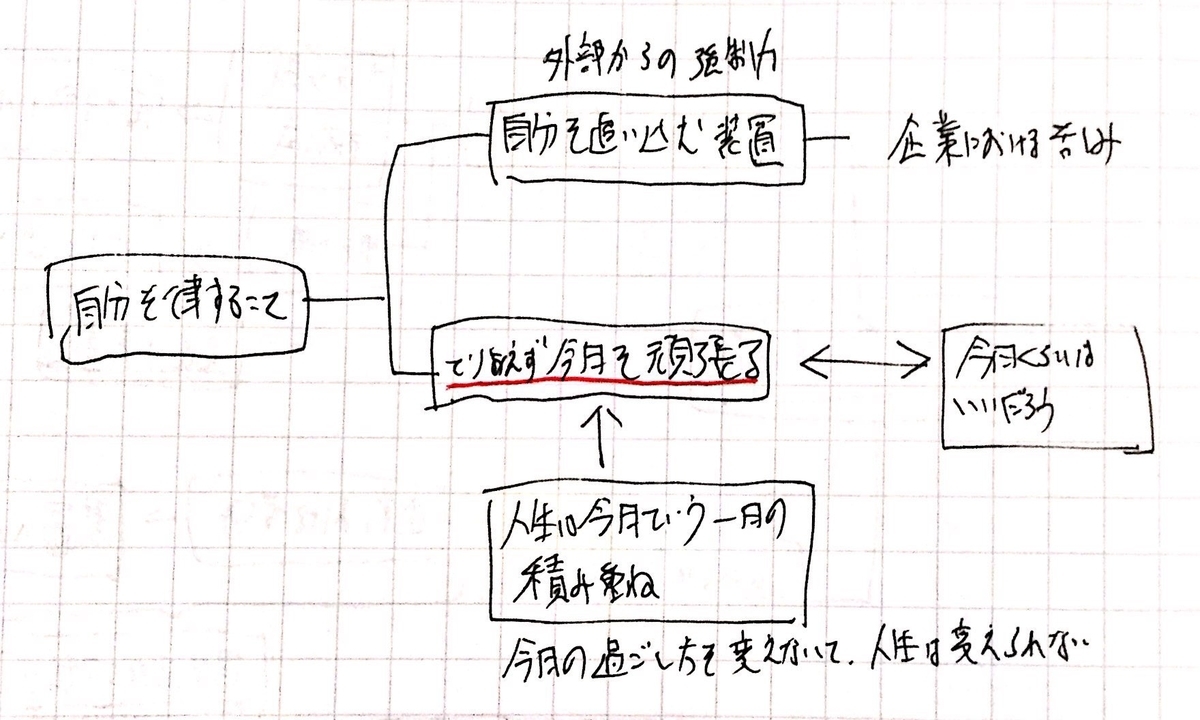 外部からの強制力
自分を追い込む装置
企業における苦しみ
自分を律すること
とり敢えず今日を頑張る
今日くらいは
いいだろう
人生は今日という一日の
積み重ね
今日の過ごし方を変えないと、人生は変えられない